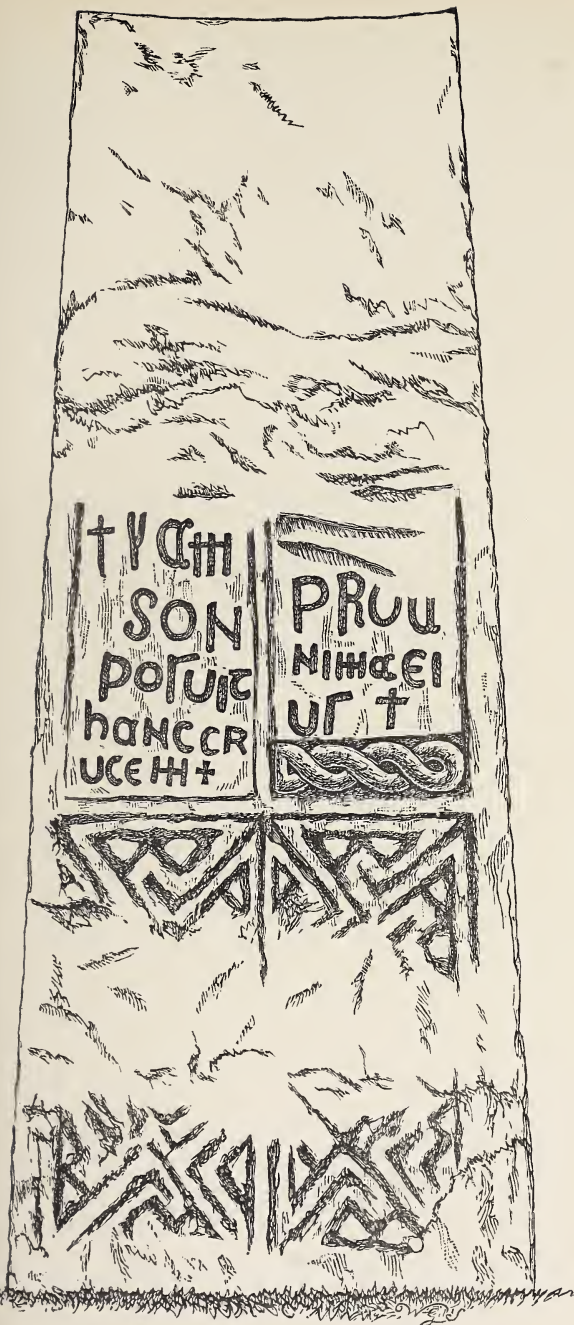 † sam
SON
posuit
haNc CR
UCEm +
PRO a
NImaEI
US †